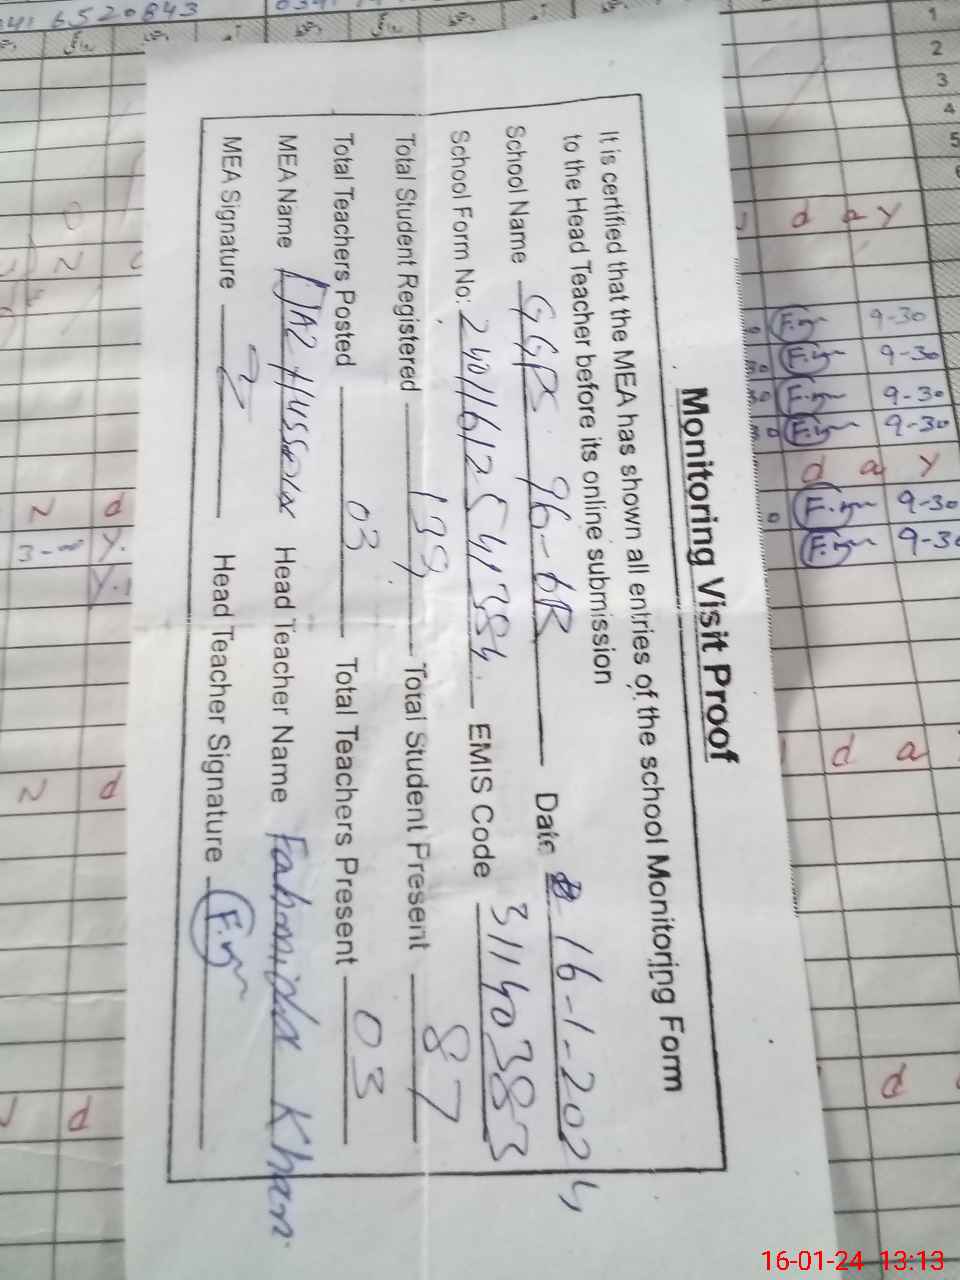 Monitoring Visit Proof
It is certified that the MEA has shown all entries of the school Monitoring Form
to the Head Teacher before its online submission
School Name GGPS 96-6R Date 16-1-2024
School Form No: 24011612541384 EMIS Code 31140383
Total Student Registered 139 Total Student Present 87
Total Teachers Posted 03 Total Teachers Present 03
MEA Name Hussain Head Teacher Name Fahmida Khan
MEA Signature Head Teacher Signature
6520843
1
2
3
4
5
d a y
9-30
9-30
9-30
9-30
d a y
9-30
9-30
d a
d
16-01-24 13:13